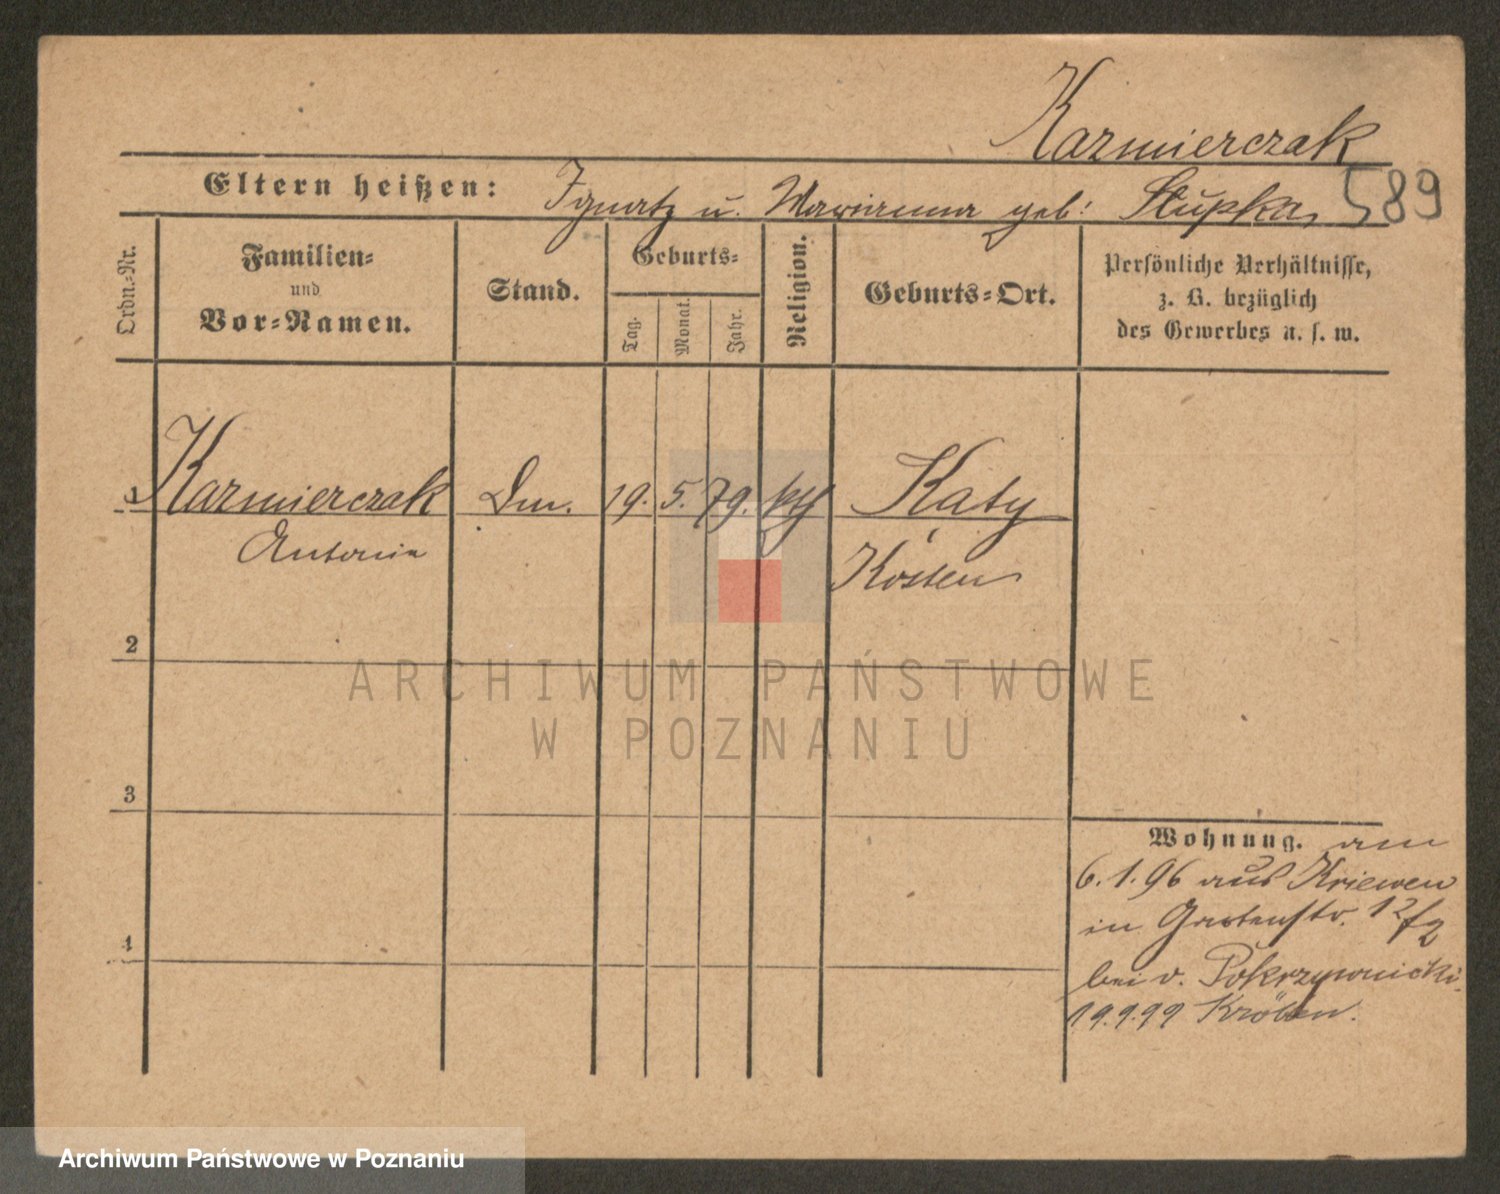 Kazmierczak
Eltern heißen: Ignatz u. Marianna geb: Stupka, 589
Ordn.-Nr.
Familien-
und
Vor-Namen.
Stand.
Geburts-
Tag.
Monat.
Jahr.
Religion.
Geburts-Ort.
Persönliche Verhältnisse,
z. B. bezüglich
des Gewerbes u. s. w.
1 Kazmierczak Dm. 19. 5. 79. kth Katy
Antonie Kosten
2
3
Wohnung. am
6.1.96 aus Kriewen
in Gartenstr. 12/2
bei v. Pokrzywnicki.
19.9.99 Kröben.
4
ARCHIWUM PAŃSTWOWE
W POZNANIU
Archiwum Państwowe w Poznaniu